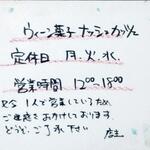 ウィーン菓子 ナッシュカッツェ
定休日 月.火.水.
営業時間 12:00～18:00
P.S 1人で営業しているため、
ご迷惑をおかけしております。
どうぞ、ご了承下さい
店主